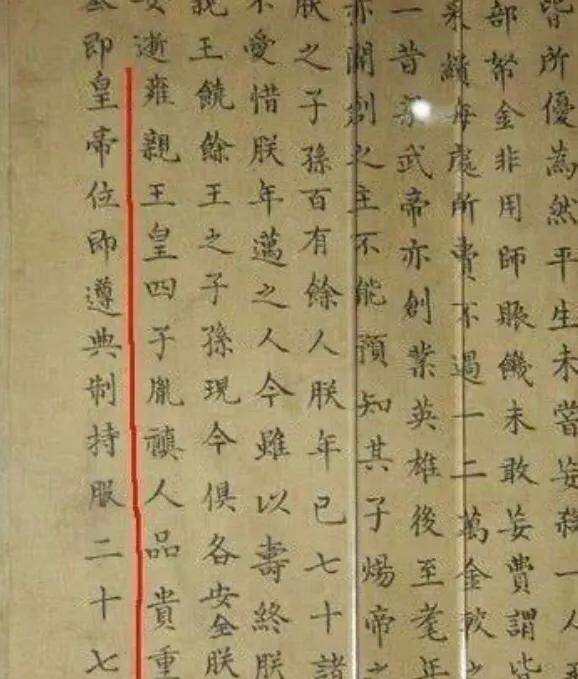 皆所優為然平生未嘗妄殺一人
部帑金非用師賑饑未敢妄費謂皆
采繢每處所費不過一二萬金較之
一昔梁武帝亦創業英雄後至耄年
亦開創之主不能預知其子煬帝之
朕之子孫百有餘人朕年已七十諸
不愛惜朕年邁之人今雖以壽終朕
親王饒餘王之子孫現今俱各安全朕
安逝雍親王皇四子胤禛人品貴重
基即皇帝位即遵典制持服二十七